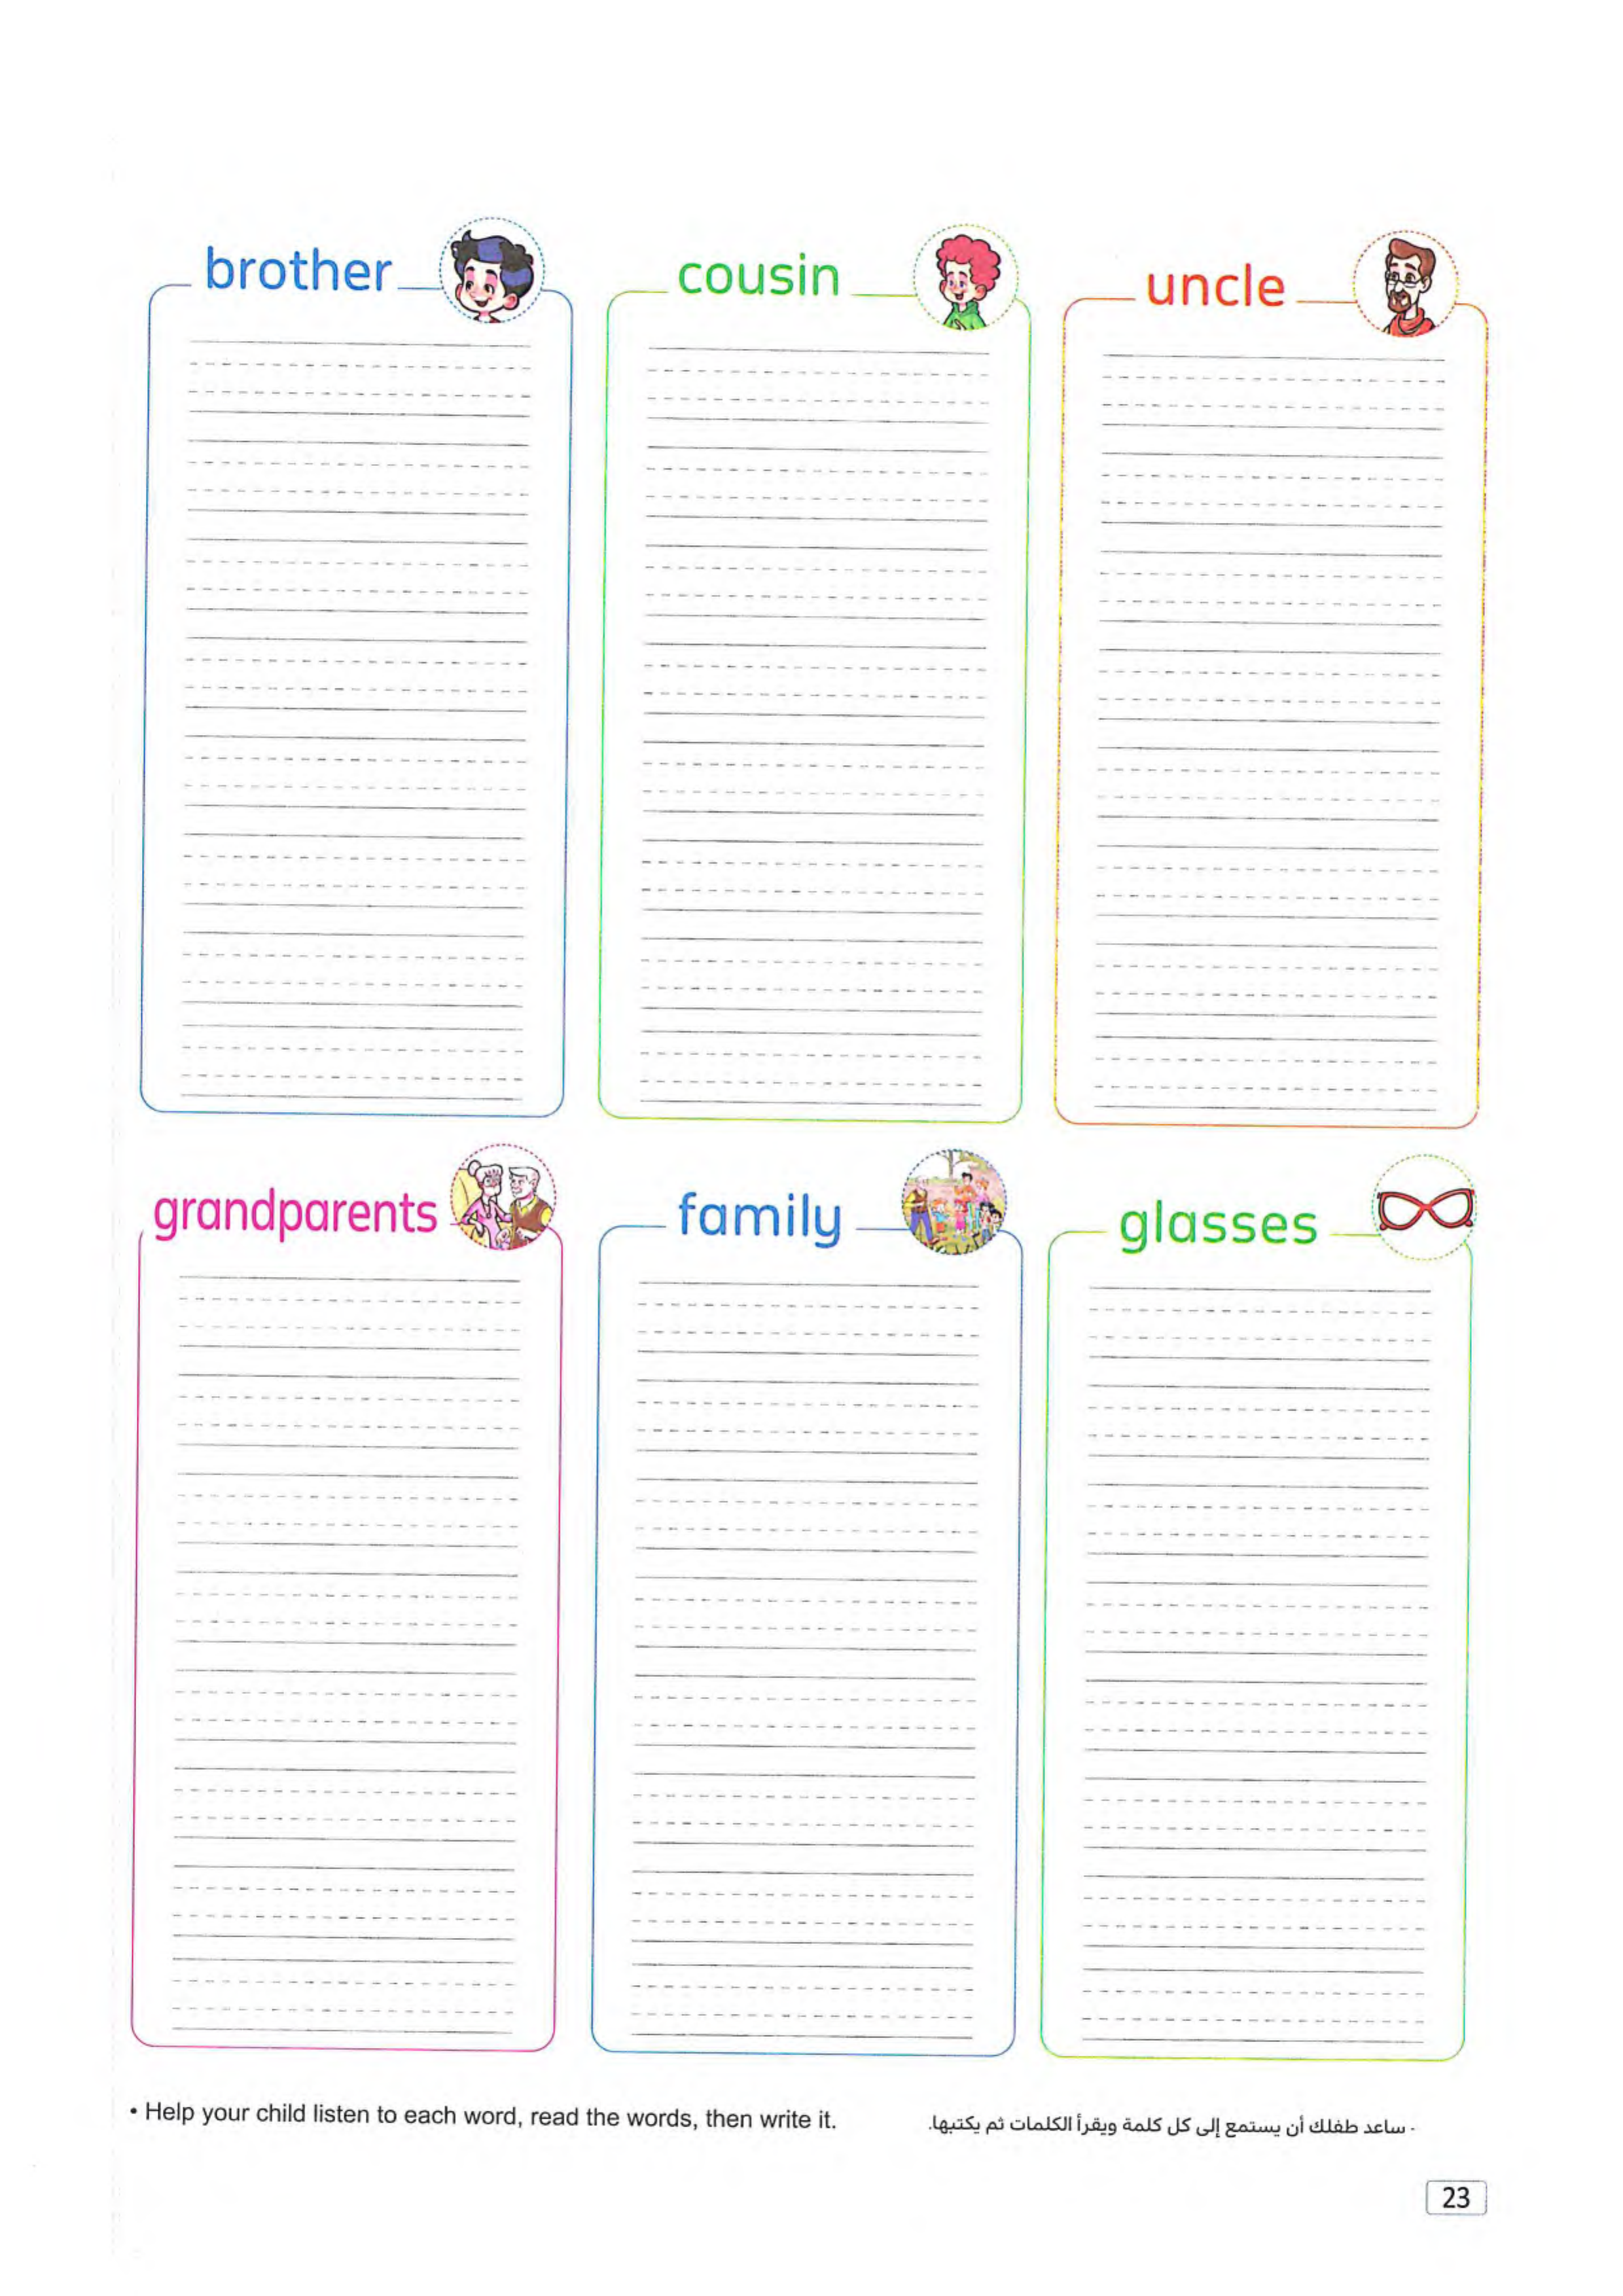 brother
cousin
uncle
grandparents
family
glasses
• Help your child listen to each word, read the words, then write it.
- ساعد طفلك أن يستمع إلى كل كلمة ويقرأ الكلمات ثم يكتبها.
23